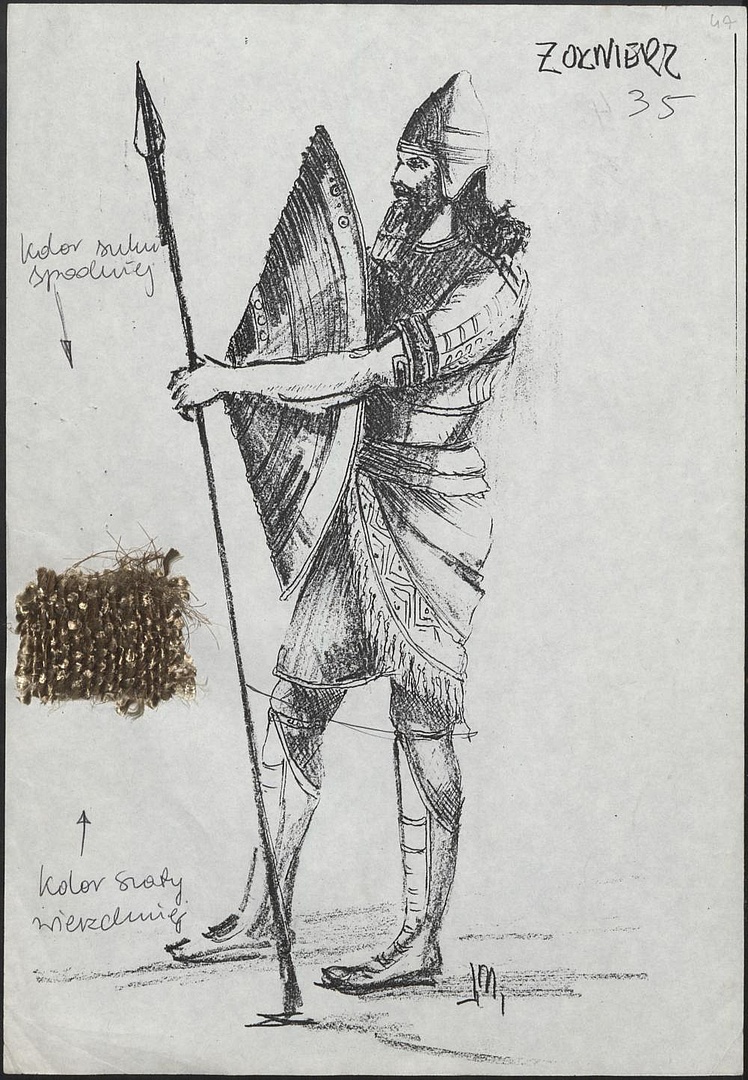 47
ŻOŁNIERZ
35
kolor sukni
spodniej
kolor szaty
wierzchniej
JM,